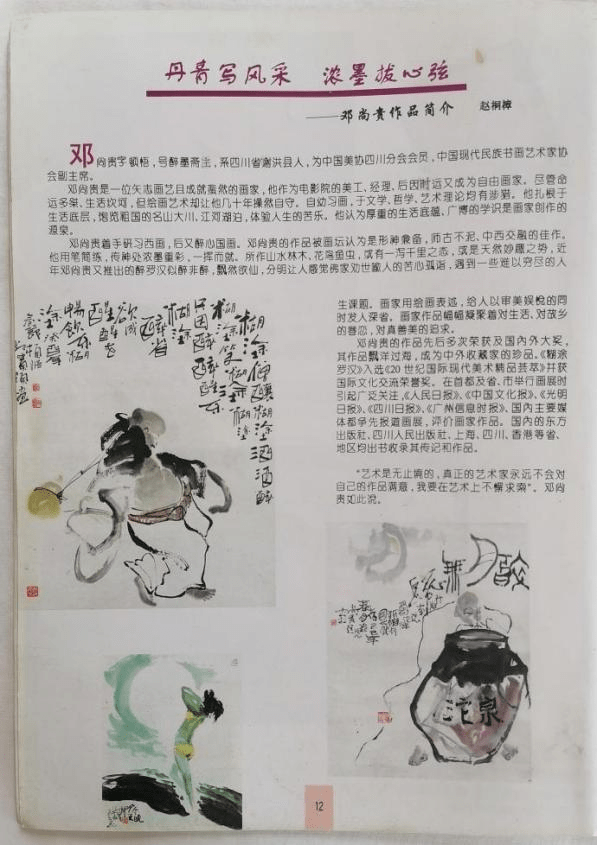 丹青写风采 浓墨拔心弦
——邓尚贵作品简介 赵桐樟
邓尚贵字顿悟，号醉墨斋主，系四川省射洪县人，为中国美协四川分会会员，中国现代民族书画艺术家协
会副主席。
邓尚贵是一位矢志画艺且成就斐然的画家，他作为电影院的美工、经理、后因时运又成为自由画家。尽管命
运多桀，生活坎坷，但绘画艺术却让他几十年操然自守。自幼习画，于文学、哲学、艺术理论均有涉猎。他扎根于
生活底层，饱览祖国的名山大川，江河湖泊，体验人生的苦乐。他认为厚重的生活底蕴、广博的学识是画家创作的
源泉。
邓尚贵着手研习西画，后又醉心国画。邓尚贵的作品被画坛认为是形神兼备，师古不泥、中西交融的佳作。
他用笔简练，传神处浓墨重彩，一挥而就。所作山水林木、花鸟鱼虫，或有一泻千里之态，或是天然妙趣之势，近
年邓尚贵又推出的醉罗汉似醉非醉，飘然欲仙，分明让人感觉佛家劝世喻人的苦心孤诣，遇到一些难以穷尽的人
生课题。画家用绘画表述，给人以审美娱悦的同
时发人深省。画家作品幅幅凝聚着对生活、对故乡
的眷恋，对真善美的追求。
邓尚贵的作品先后多次荣获及国内外大奖，
其作品飘洋过海，成为中外收藏家的珍品。《糊涂
罗汉》入选《20世纪国际现代美术精品荟萃》并获
国际文化交流荣誉奖。在首都及省、市举行画展时
引起广泛关注，《人民日报》、《中国文化报》、《光明
日报》、《四川日报》、《广州信息时报》、国内主要媒
体都争先报道画展，评价画家作品。国内的东方
出版社，四川人民出版社，上海、四川、香港等省、
地区均出书收录其传记和作品。
“艺术是无止境的，真正的艺术家永远不会对
自己的作品满意，我要在艺术上不懈求索”。邓尚
贵如此说。
醉月
沱泉
12